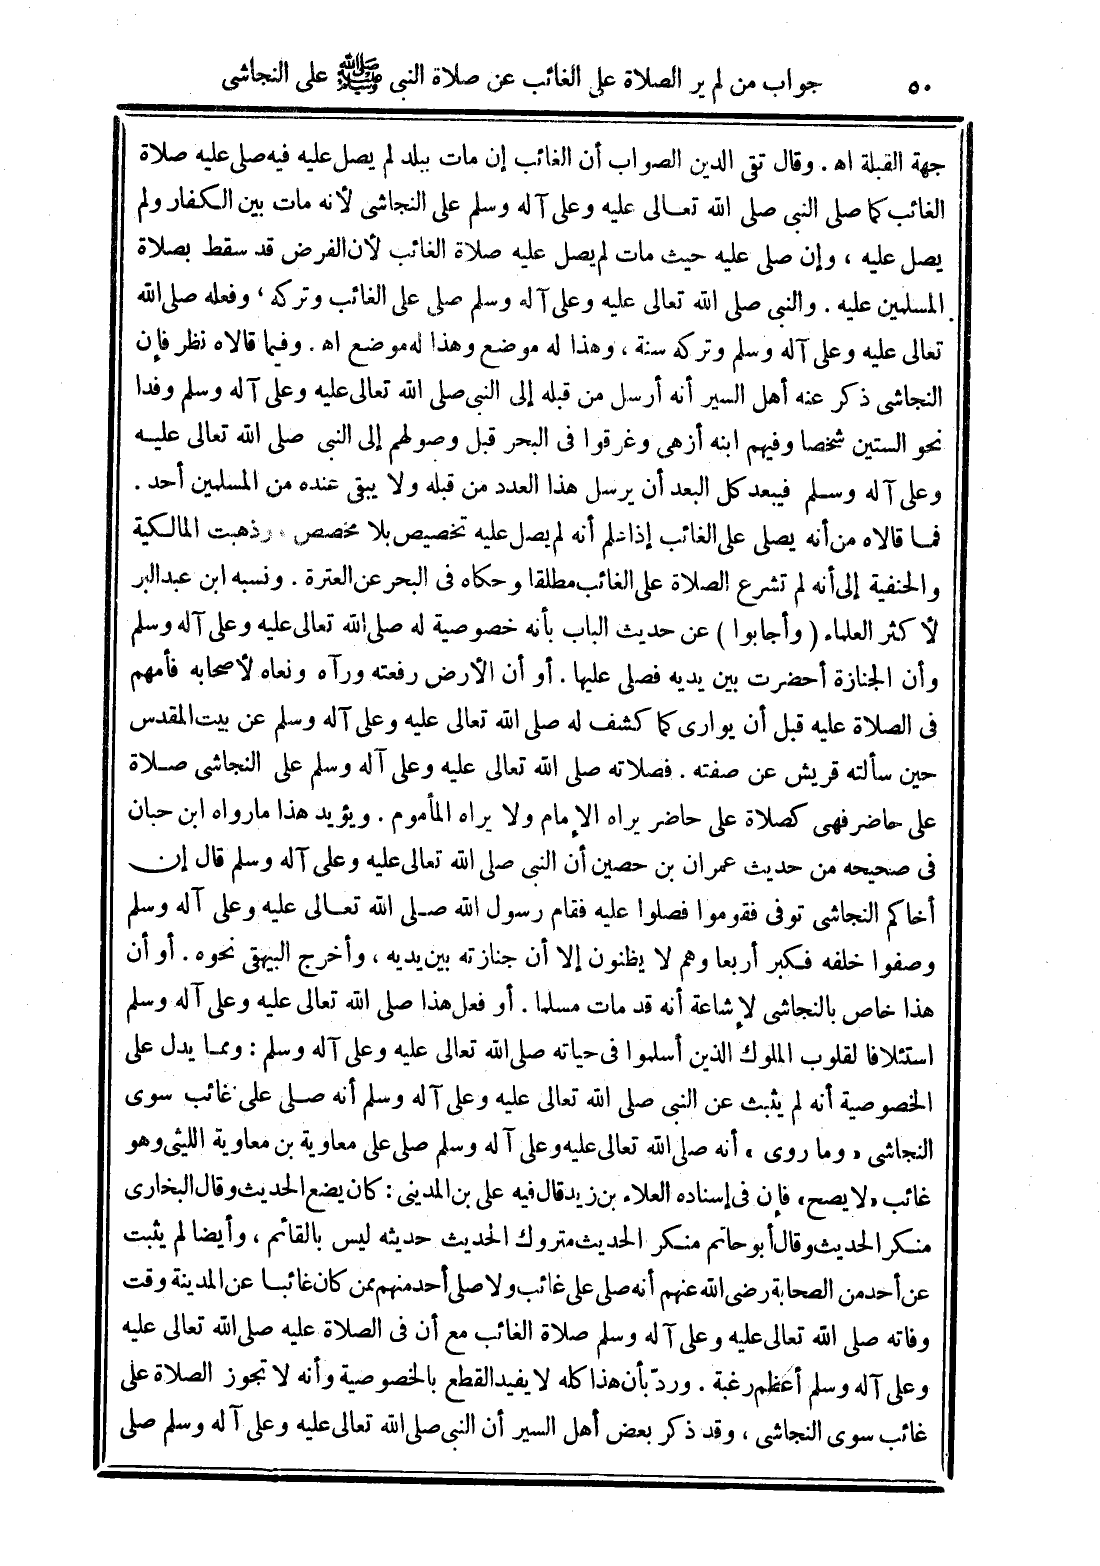 ٥٠ جواب من لم ير الصلاة على الغائب عن صلاة النبى ﷺ على النجاشى
جهة القبلة اه . وقال تقى الدين الصواب أن الغائب إن مات ببلد لم يصل عليه فيه صلى عليه صلاة
الغائب كما صلى النبى صلى الله تعالى عليه وعلى آله وسلم على النجاشى لأنه مات بين الكفار ولم
يصل عليه ، وإن صلى عليه حيث مات لم يصل عليه صلاة الغائب لأن الفرض قد سقط بصلاة
المسلمين عليه . والنبى صلى الله تعالى عليه وعلى آله وسلم صلى على الغائب وتركه ، وفعله صلى الله
تعالى عليه وعلى آله وسلم وتركه سنة ، وهذا له موضع وهذا له موضع اه . وفيما قالاه نظر فإن
النجاشى ذكر عنه أهل السير أنه أرسل من قبله إلى النبى صلى الله تعالى عليه وعلى آله وسلم وفدا
نحو الستين شخصا وفيهم ابنه أزهى وغرقوا فى البحر قبل وصولهم إلى النبى صلى الله تعالى عليه
وعلى آله وسلم فيبعد كل البعد أن يرسل هذا العدد من قبله ولا يبقى عنده من المسلمين أحد .
فما قالاه من أنه يصلى على الغائب إذا علم أنه لم يصل عليه تخصيص بلا مخصص . وذهبت المالكية
والحنفية إلى أنه لم تشرع الصلاة على الغائب مطلقا وحكاه فى البحر عن العترة . ونسبه ابن عبد البر
لأكثر العلماء ( وأجابوا ) عن حديث الباب بأنه خصوصية له صلى الله تعالى عليه وعلى آله وسلم
وأن الجنازة أحضرت بين يديه فصلى عليها . أو أن الأرض رفعته ورآه ونعاه لأصحابه فأمهم
فى الصلاة عليه قبل أن يوارى كما كشف له صلى الله تعالى عليه وعلى آله وسلم عن بيت المقدس
حين سألته قريش عن صفته . فصلاته صلى الله تعالى عليه وعلى آله وسلم على النجاشى صلاة
على حاضر فهى كصلاة على حاضر يراه الإمام ولا يراه المأموم . ويؤيد هذا مارواه ابن حبان
فى صحيحه من حديث عمران بن حصين أن النبى صلى الله تعالى عليه وعلى آله وسلم قال إن
أخاكم النجاشى توفى فقوموا فصلوا عليه فقام رسول الله صلى الله تعالى عليه وعلى آله وسلم
وصفوا خلفه فكبر أربعا وهم لا يظنون إلا أن جنازته بين يديه ، وأخرج البيهقى نحوه . أو أن
هذا خاص بالنجاشى لإشاعة أنه قد مات مسلما . أو فعل هذا صلى الله تعالى عليه وعلى آله وسلم
استئلافا لقلوب الملوك الذين أسلموا فى حياته صلى الله تعالى عليه وعلى آله وسلم : ومما يدل على
الخصوصية أنه لم يثبت عن النبى صلى الله تعالى عليه وعلى آله وسلم أنه صلى على غائب سوى
النجاشى «وما روى» أنه صلى الله تعالى عليه وعلى آله وسلم صلى على معاوية بن معاوية الليثى وهو
غائب «لا يصح» فإن فى إسناده العلاء بن زيد قال فيه على بن المدينى : كان يضع الحديث وقال البخارى
منكر الحديث وقال أبو حاتم منكر الحديث متروك الحديث حديثه ليس بالقائم ، وأيضا لم يثبت
عن أحد من الصحابة رضى الله عنهم أنه صلى على غائب ولا صلى أحد منهم ممن كان غائبا عن المدينة وقت
وفاته صلى الله تعالى عليه وعلى آله وسلم صلاة الغائب مع أن فى الصلاة عليه صلى الله تعالى عليه
وعلى آله وسلم أعظم رغبة . وردّ بأن هذا كله لا يفيد القطع بالخصوصية وأنه لا تجوز الصلاة على
غائب سوى النجاشى ، وقد ذكر بعض أهل السير أن النبى صلى الله تعالى عليه وعلى آله وسلم صلى